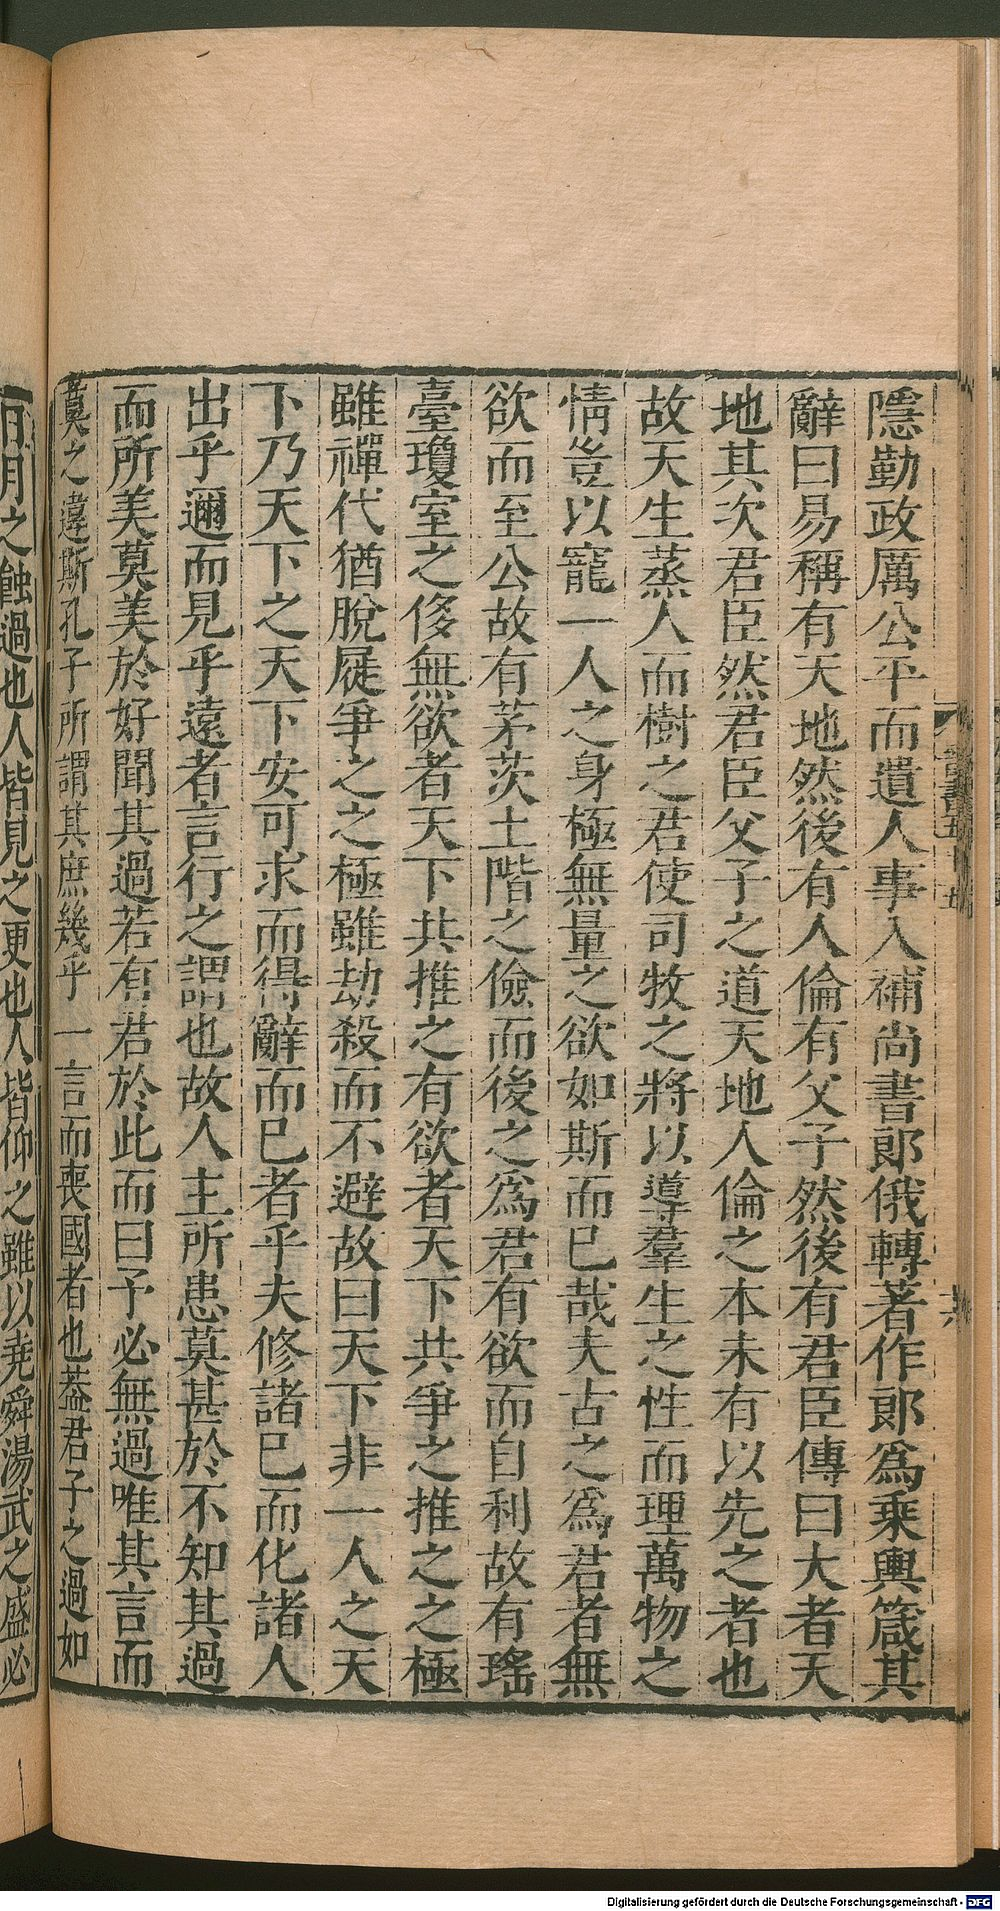 隱勤政厲公平而遺人事入補尚書郎俄轉著作郎爲乘輿箴其
辭曰易稱有天地然後有人倫有父子然後有君臣傳曰大者天
地其次君臣然君臣父子之道天地人倫之本未有以先之者也
故天生蒸人而樹之君使司牧之將以導羣生之性而理萬物之
情豈以寵一人之身極無量之欲如斯而已哉夫古之爲君者無
欲而至公故有茅茨土階之儉而後之爲君有欲而自利故有瑤
臺瓊室之侈無欲者天下共推之有欲者天下共爭之推之之極
雖禪代猶脫屣爭之之極雖劫殺而不避故曰天下非一人之天
下乃天下之天下安可求而得辭而已者乎夫修諸己而化諸人
出乎邇而見乎遠者言行之謂也故人主所患莫甚於不知其過
而所美莫美於好聞其過若有君於此而曰予必無過唯其言而
莫之違斯孔子所謂其庶幾乎一言而喪國者也葢君子之過如
日月之蝕過也人皆見之更也人皆仰之雖以堯舜湯武之盛必
Digitalisierung gefördert durch die Deutsche Forschungsgemeinschaft - DFG